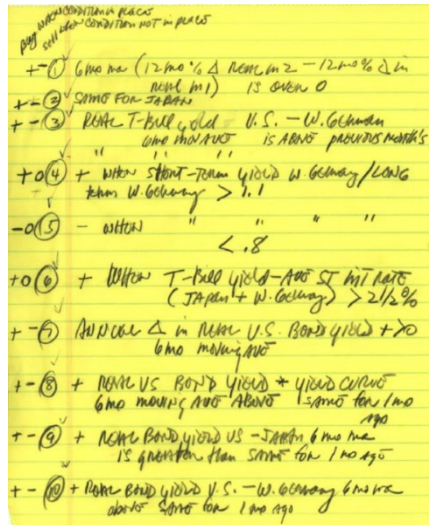 buy WHEN CONDITION IN PLACE
sell when CONDITION NOT in place
+ - ① 6mo ma (12mo % Δ REAL m2 - 12mo % Δ in
REAL m1) IS OVER 0
+ - ② SAME FOR JAPAN
+ - ③ REAL T-Bill yield U.S. - W. German
6mo MOV AVE IS ABOVE PREVIOUS MONTH'S
" " "
+ 0 ④ + WHEN SHORT-TERM YIELD W. GERMANY / LONG
term W. Germany > 1.1
- 0 ⑤ - WHEN " " " "
< .8
+ 0 ⑥ + WHEN T-Bill YIELD - AVE ST INT RATE
(JAPAN + W. Germany) > 2 1/2 %
+ - ⑦ ANNUAL Δ in REAL U.S. BOND YIELD + > 0
6mo moving AVE
+ - ⑧ + REAL US BOND YIELD * YIELD CURVE
6mo moving AVE ABOVE SAME FOR 1 mo
AGO
+ - ⑨ + REAL BOND YIELD US - JAPAN 6mo ma
IS GREATER than SAME for 1 mo AGO
+ - ⑩ + REAL BOND YIELD U.S. - W. GERMANY 6mo ma
above SAME FOR 1 mo ago